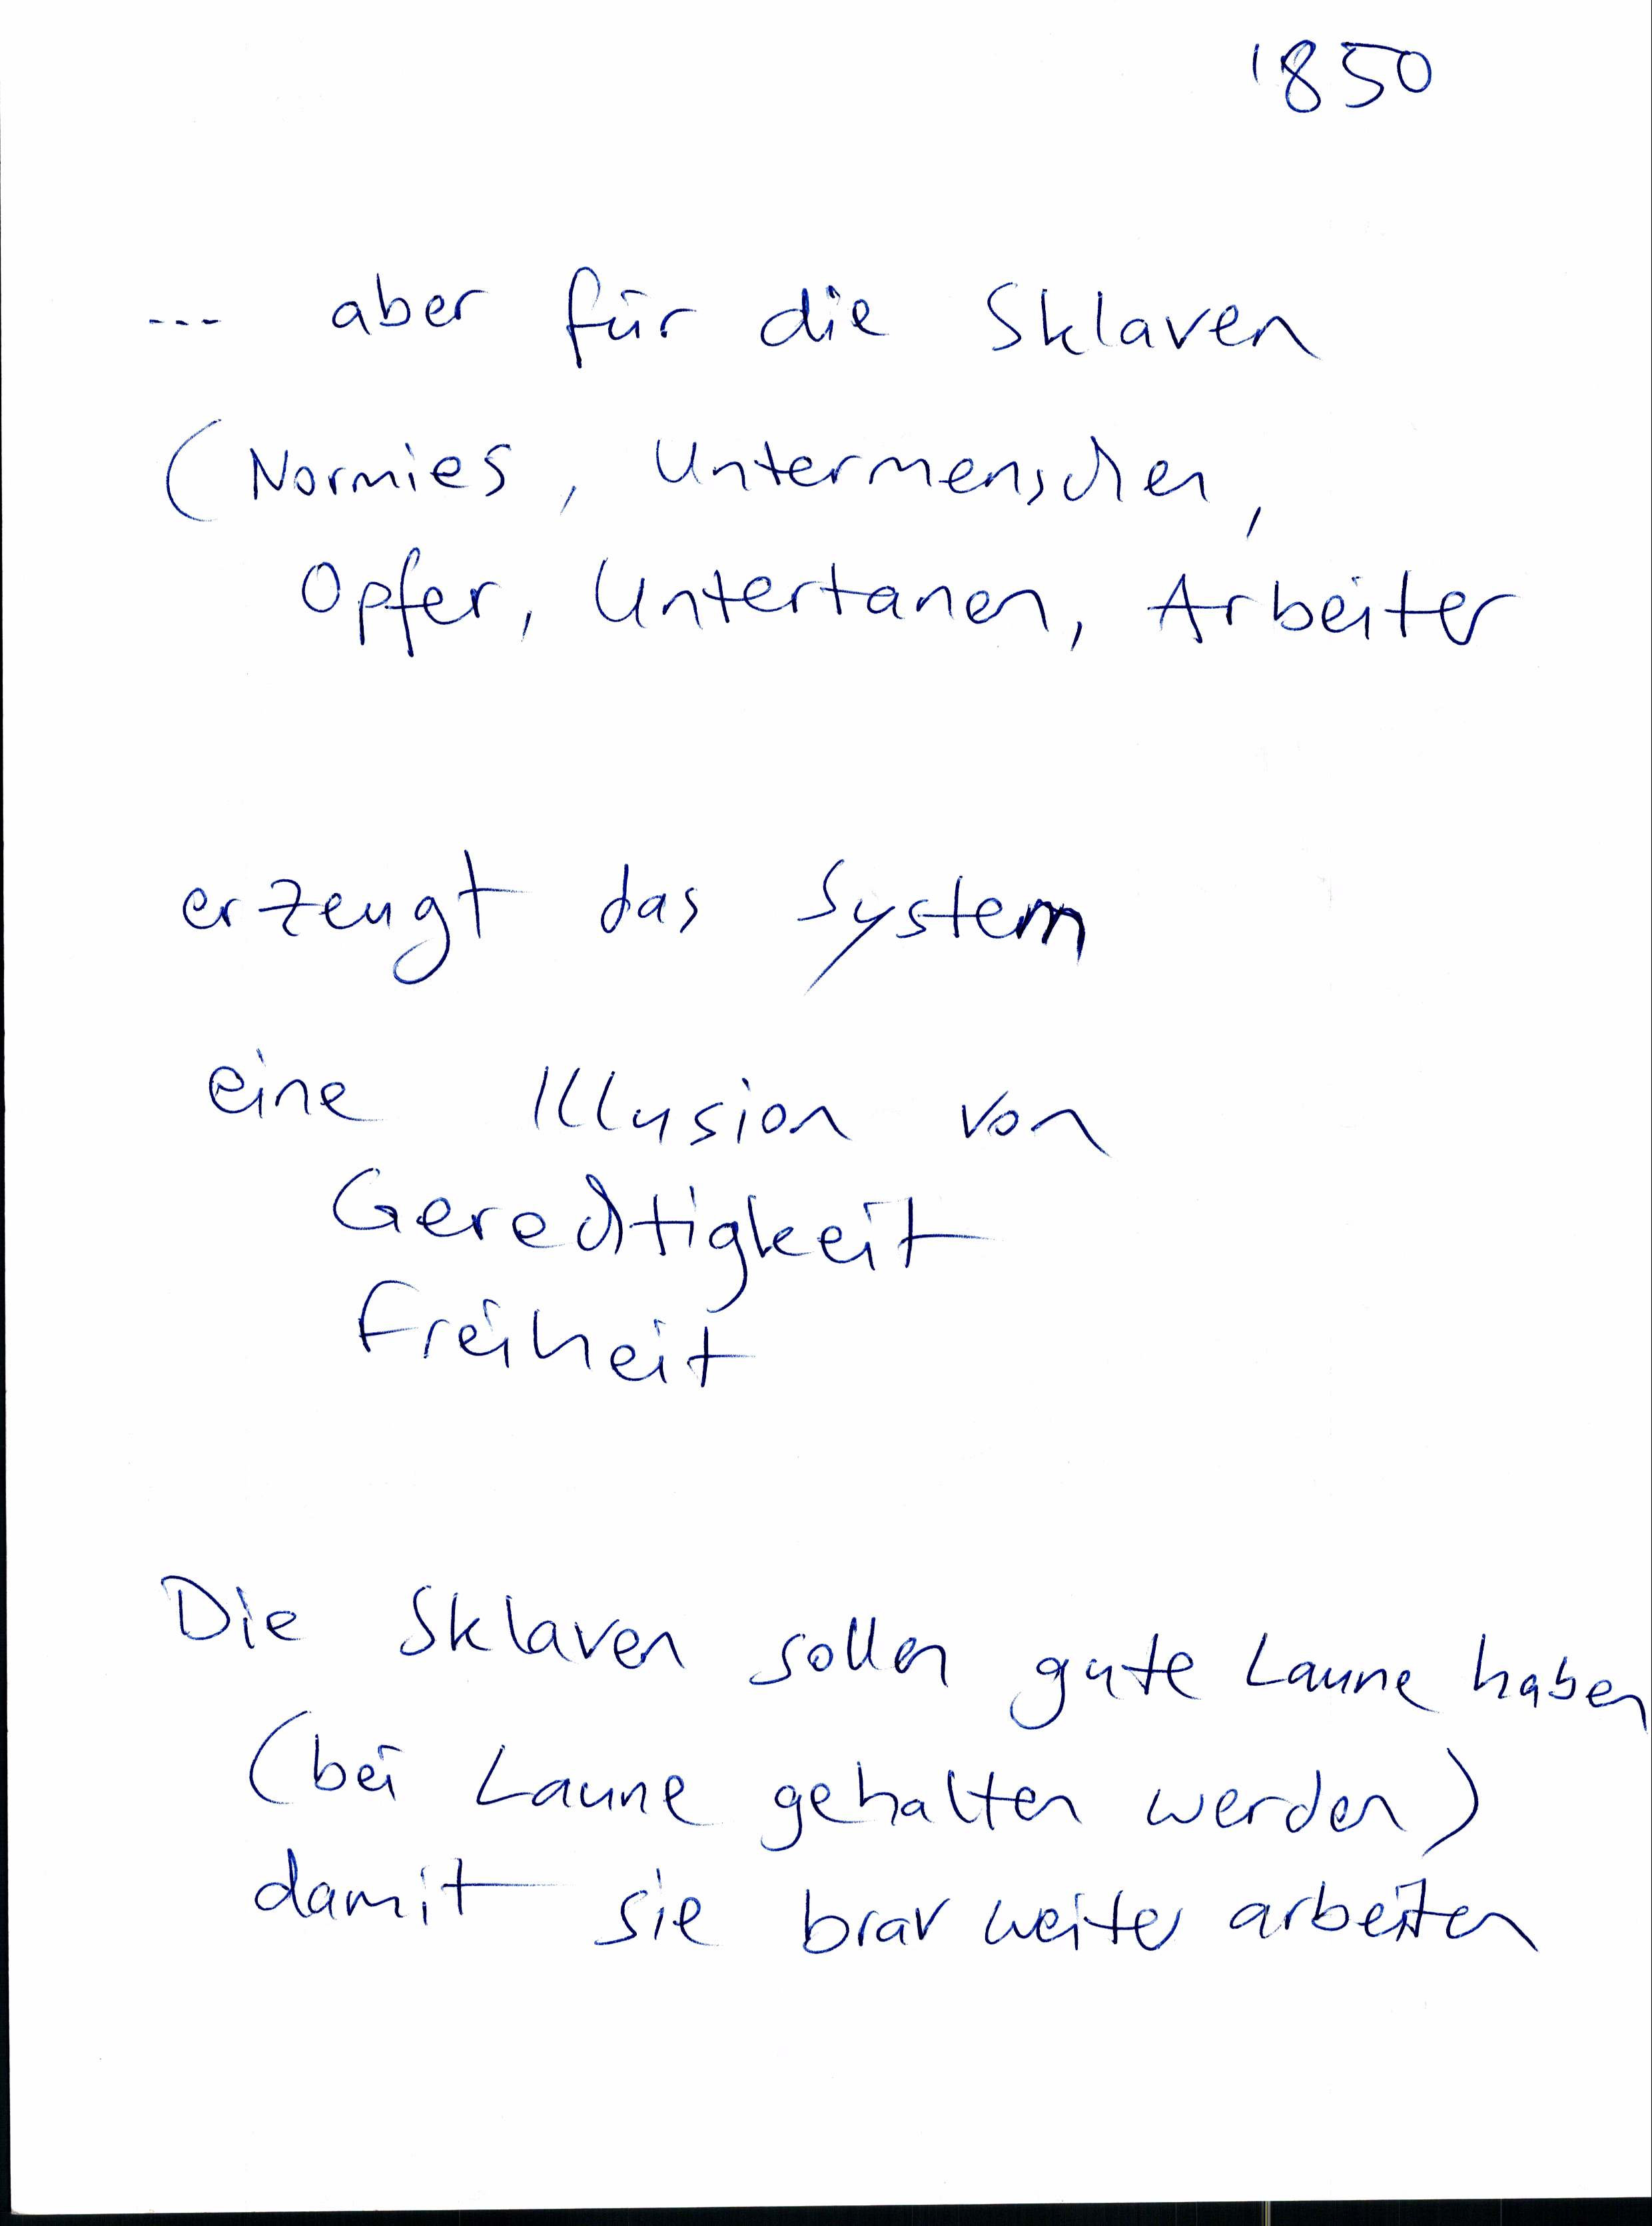 1850
--- aber für die Sklaven
(Normies, Untermenschen,
Opfer, Untertanen, Arbeiter
erzeugt das System
eine Illusion von
Gerechtigkeit
Freiheit
Die Sklaven sollen gute Laune haben
(bei Laune gehalten werden)
damit sie brav weiter arbeiten